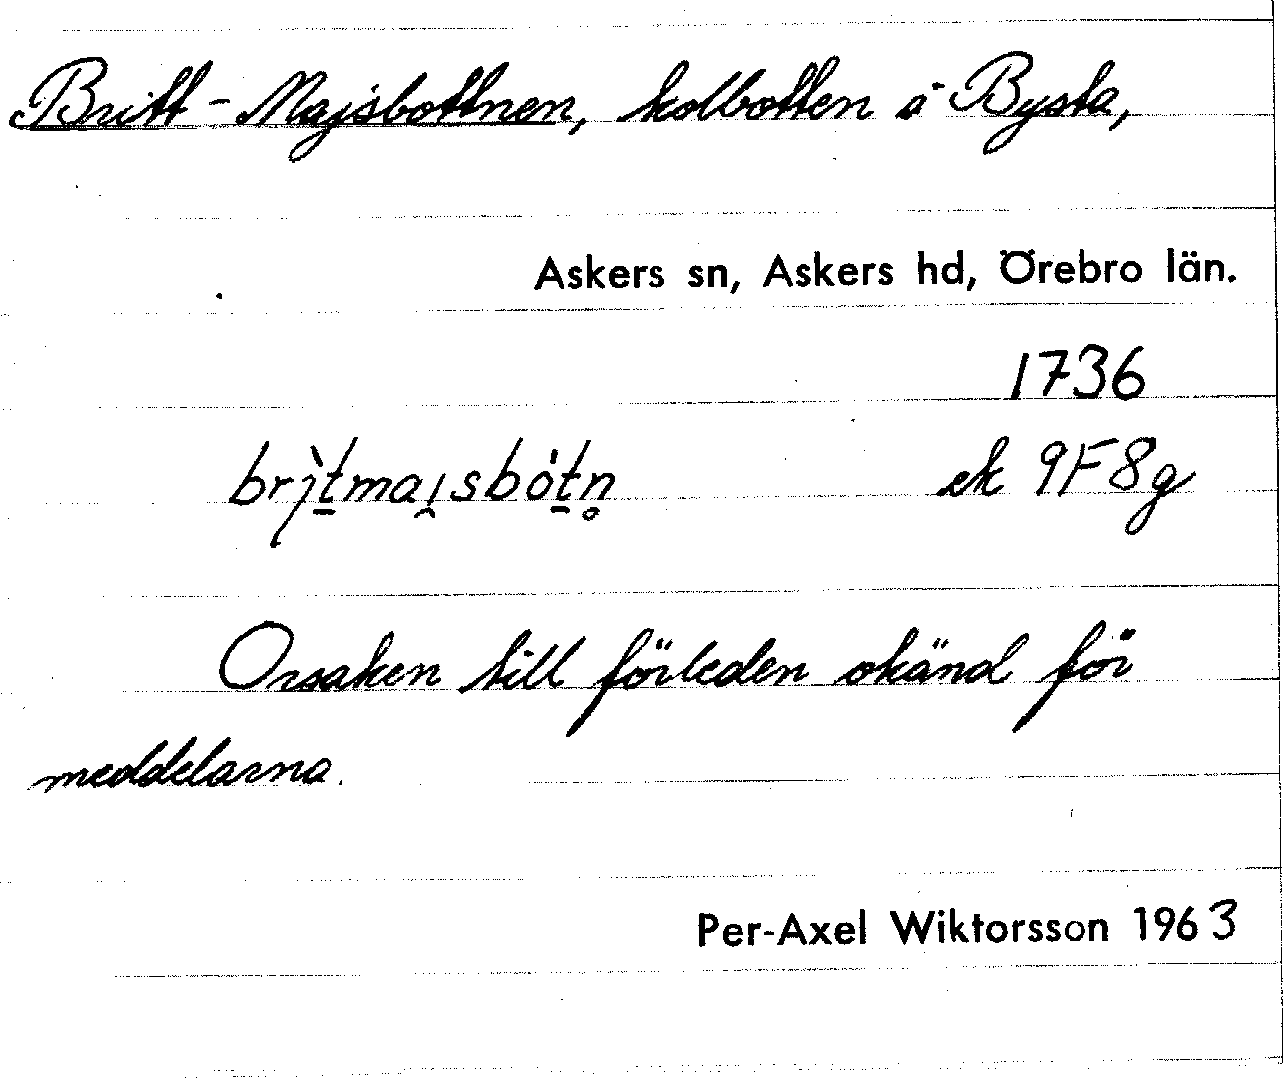 Britt-Majsbottnen, kolbotten å Bysta,
Askers sn, Askers hd, Örebro län.
1736
brı̀t̠mai̯sbòt̠n̥ ek 9F8g
Orsaken till förleden okänd för
meddelarna.
Per-Axel Wiktorsson 1963